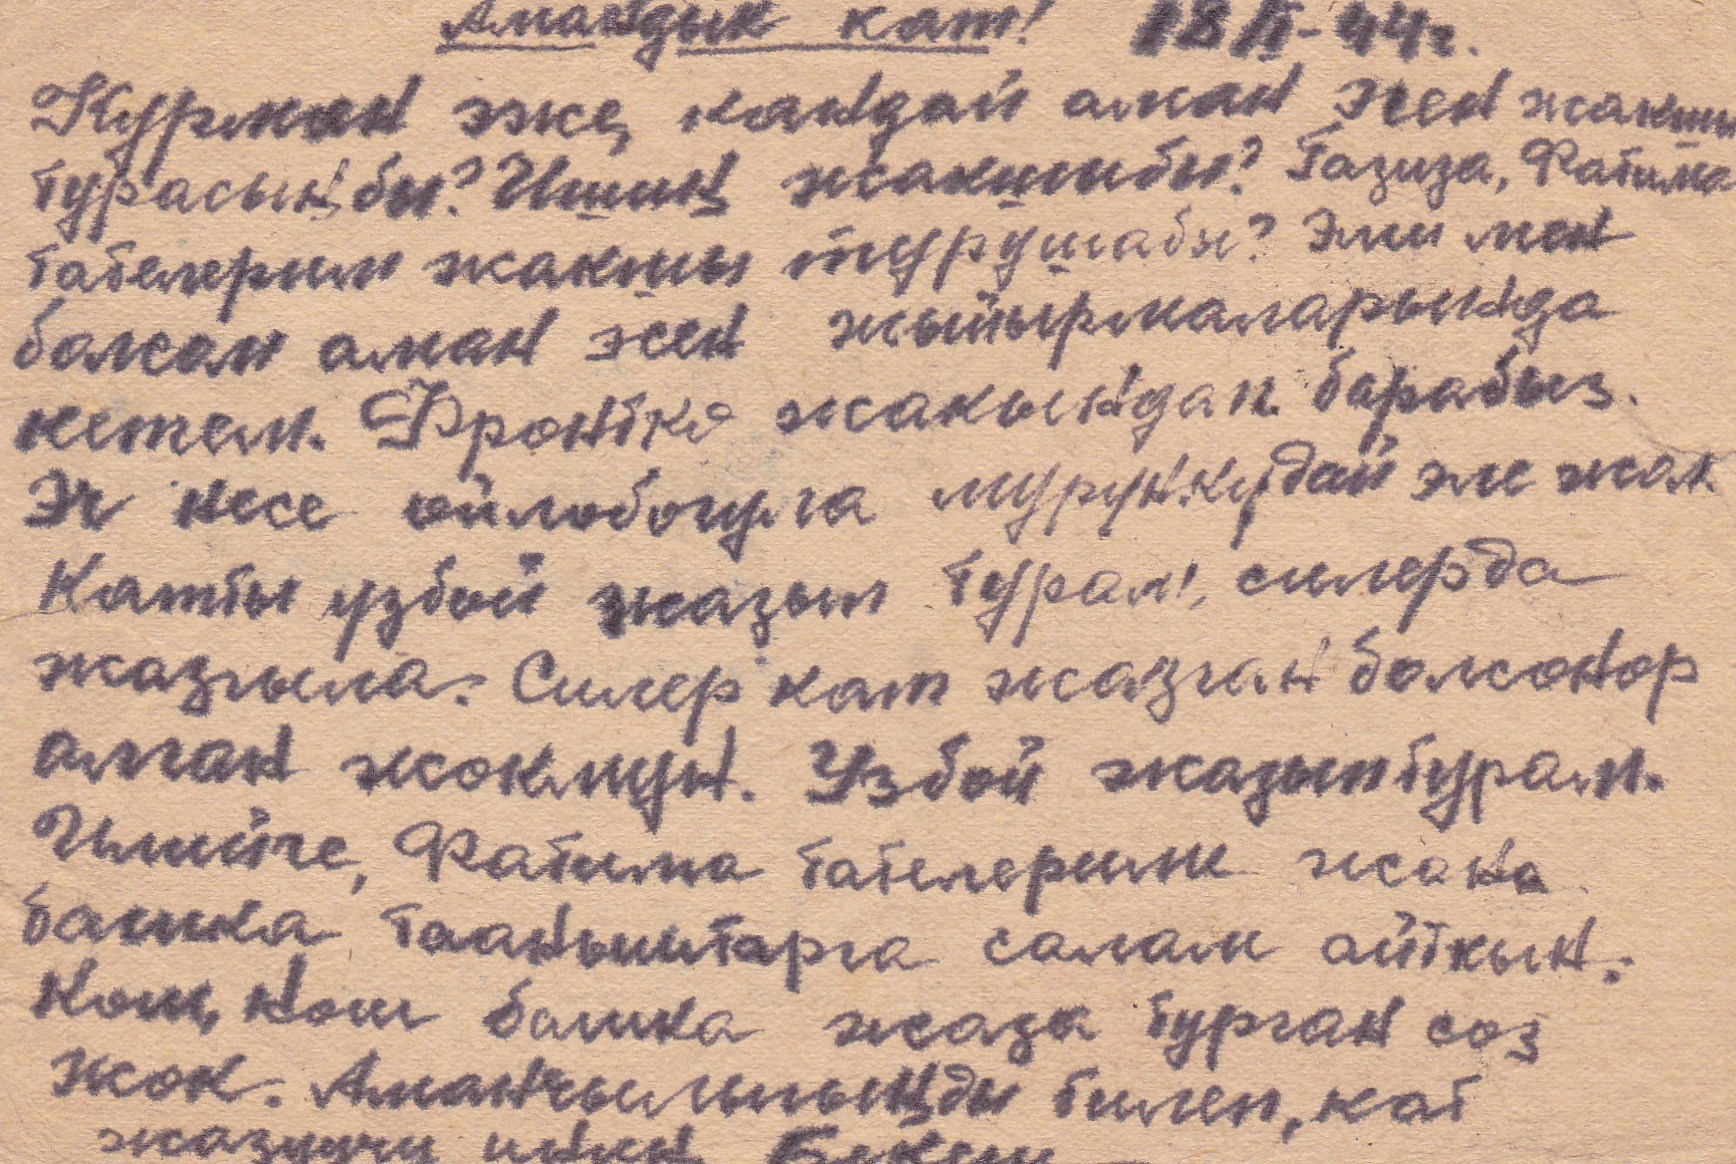 Амандык кат! 18/II-44г.
Курман эже, кандай аман эсен жакшы
турасыңбы? Ишиң жакшыбы? Газиза, Фатима
тателерим жакшы турушабы? Эми мен
болсом аман эсен жыйырмаларында
кетем. Фронтко жакындап барабыз.
Эч несе ойлобогула мурункудай эле жак
Катты узбой жазып турам, силерда
жазгыла. Силер кат жазган болсонор
алган жокмун. Узбой жазыптурам.
Фатима тателерим жана
башка тааныштарга салам айткын.
Кош, кош башка жаза турган соз
жок. Аманчылыгыңды тилеп, кат
жазуучу иниң Бекеш